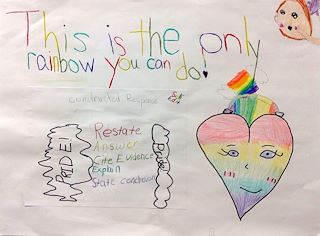 This is the only
rainbow you can do!
Constructed Response
PRIDE!
Restate
Answer
Cite Evidence
Explain
State conclusion